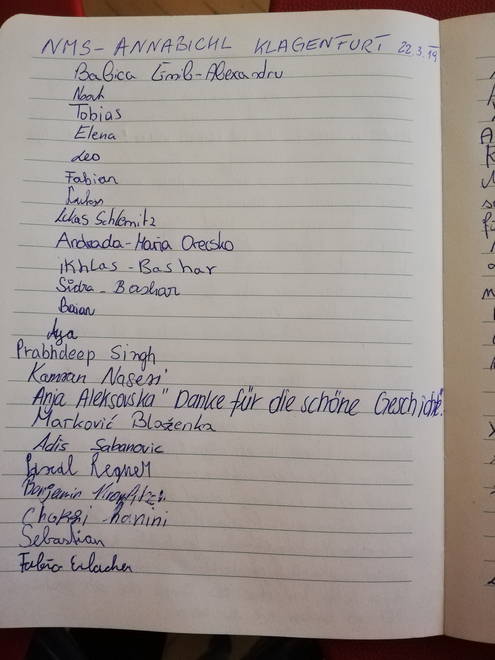 NMS-ANNABICHL KLAGENFURT 22.3.19
Babica Emil-Alexandru
Noah
Tobias
Elena
Leo
Fabian
Lukas
Lukas Schlemitz
Andrada-Maria
ikhlas - Bashar
Sidra - Bashar
Baian
Aya
Prabhdeep Singh
Kamran Naseri
Anja Aleksovska "Danke für die schöne Geschichte"
Marković Blaženka
Adis Sabanovic
Pascal Regner
Benjamin
Chokri hanini
Sebastian
Fabio Erlacher